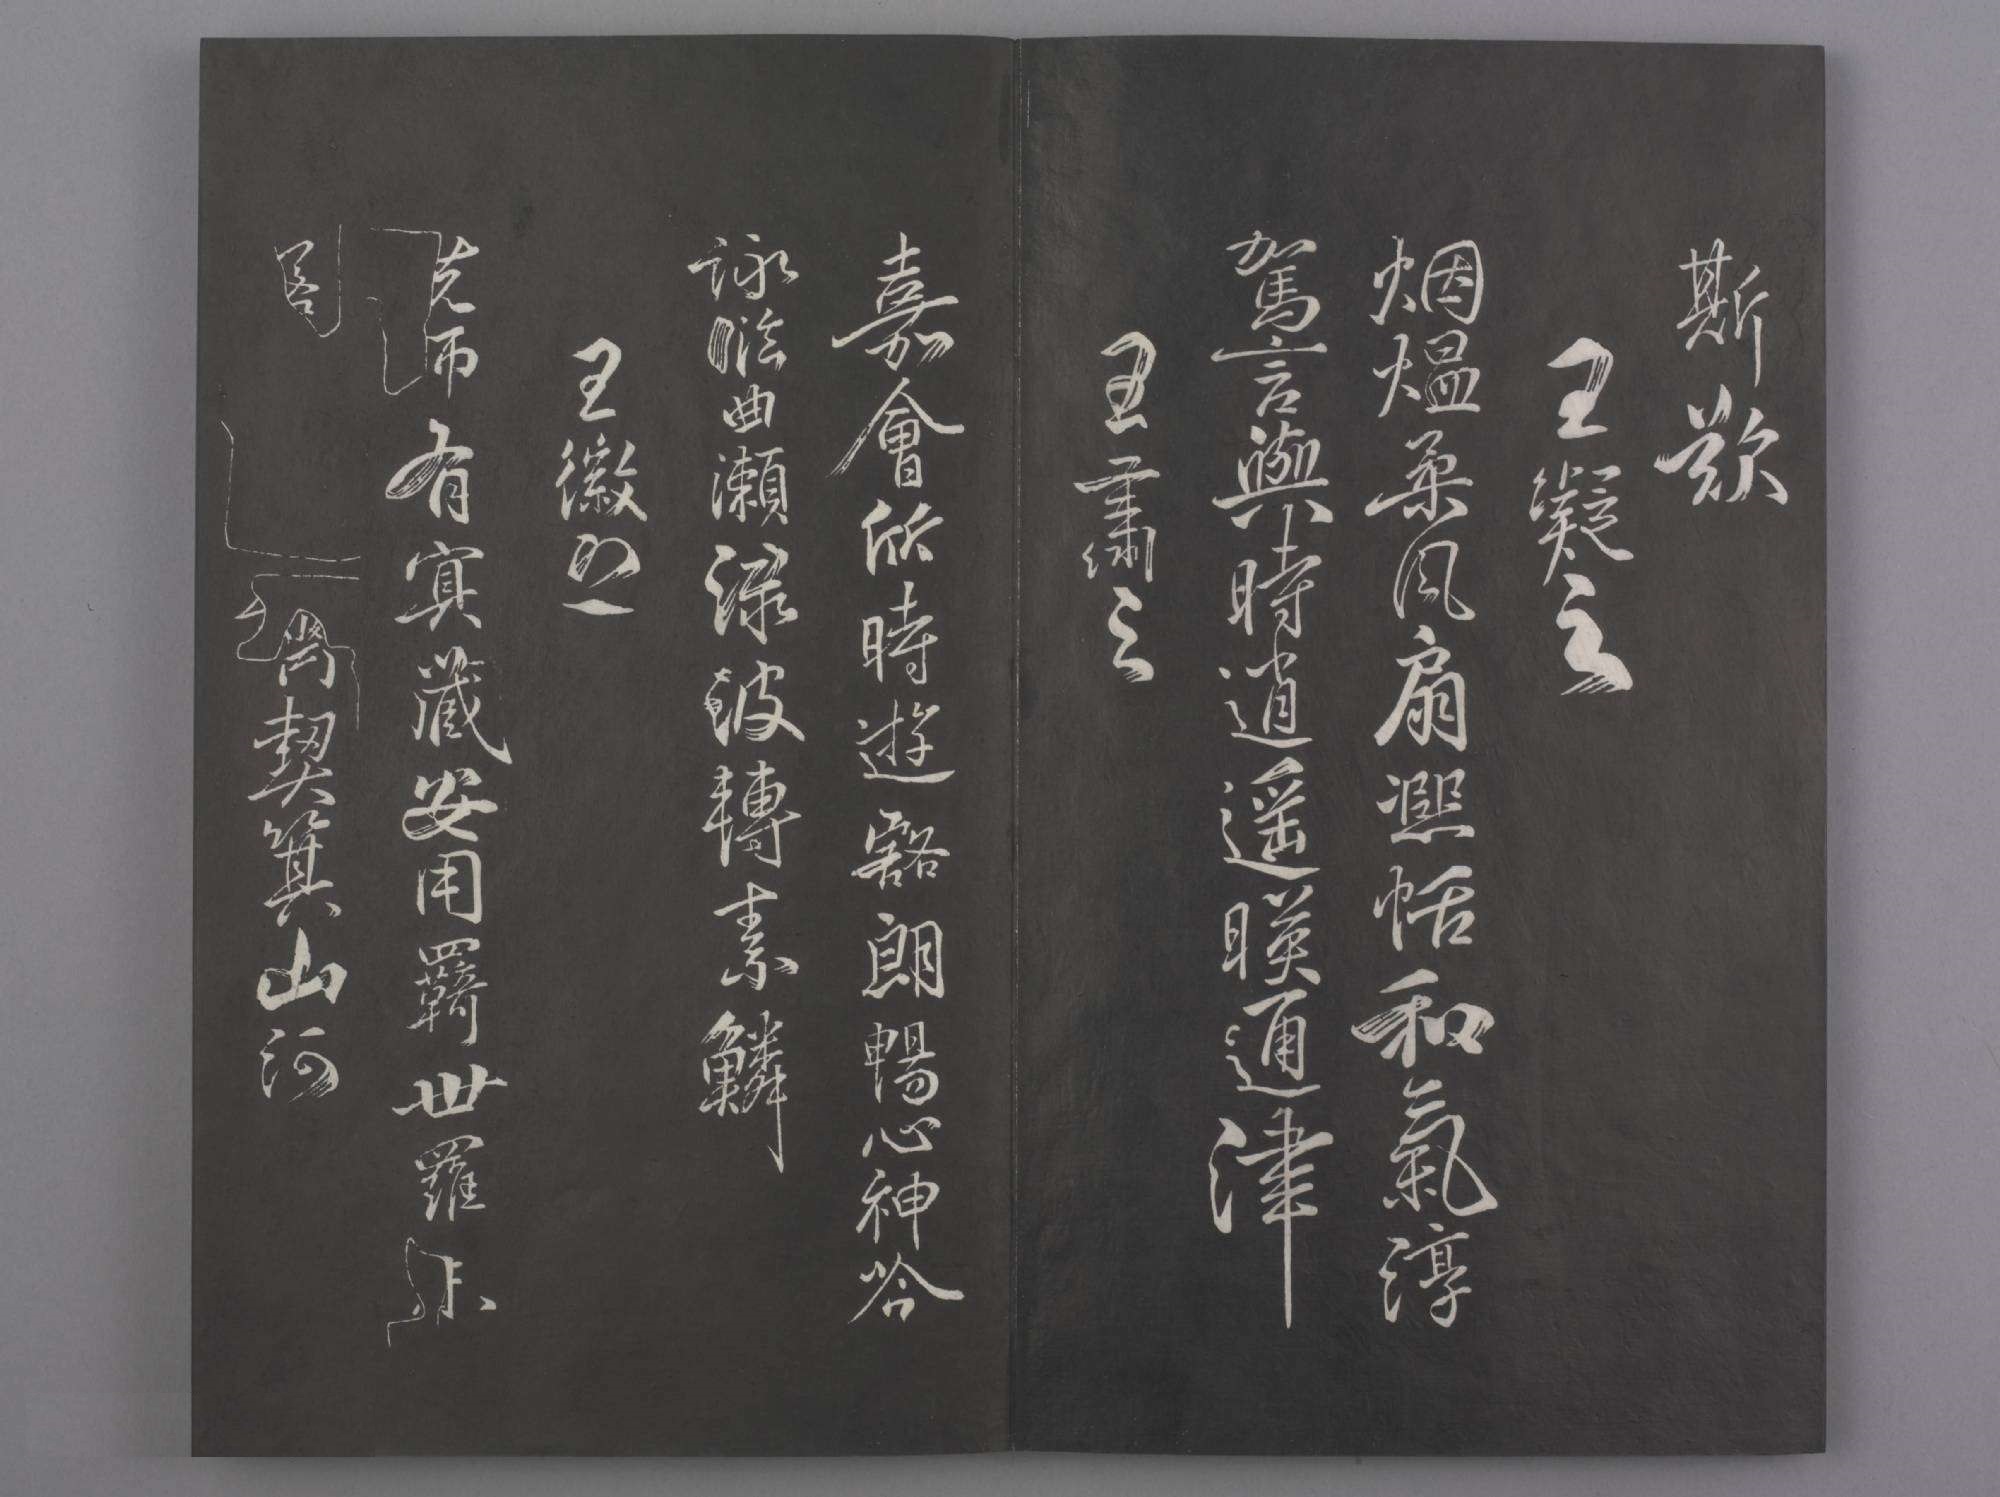 斯歎
王凝之
烟熅柔風扇熈恬和氣淳
駕言興時逍遥暎通津
王肅之
嘉會欣時遊豁朗暢心神吟
詠曲瀨淥波轉素鱗
王徽之
先師有冥藏安用羈世羅未
若齊契箕山河